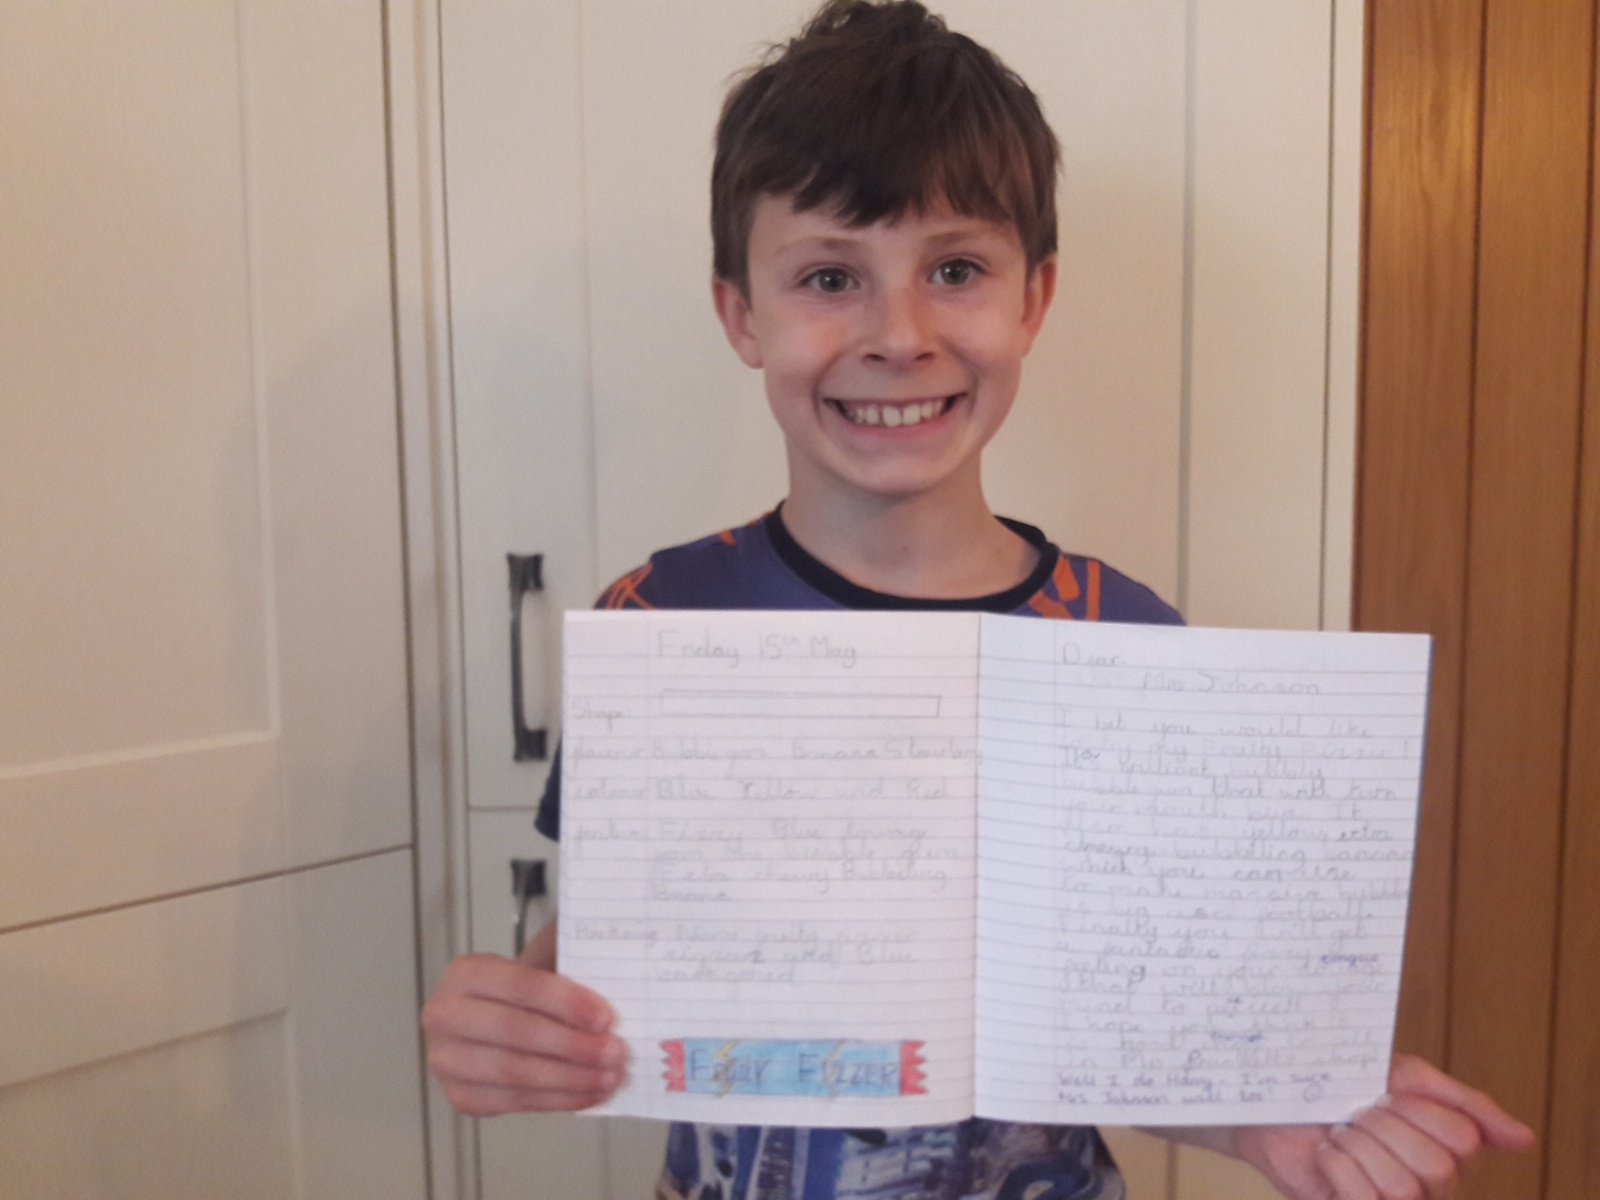 Friday 15th May
Shape:
flavour Bubblegum Banana Strawbery
colour Blue Yellow and Red
Fizzy Blue tounge
on the bubble gum
Extra chewy Bubbeling
Banana
Packaing Name fruity fizzer
and Blue
FRUITY FIZZER
Dear,
Mrs Johnson
I bet you would like
to try my fruity Fizzer!
bubbly
bubblegum that will turn
your mouth blue. It
also has yellow, extra
chewy bubbeling banana
which you can use
to make massive bubbles
as big as a football.
Finally you will get
a fantastic fizzy
feling on your tounge
that will blow your
mind to
I hope you think it
is good to sell
in shop
Well I do Harry - I'm sure
Mrs Johnson will too!